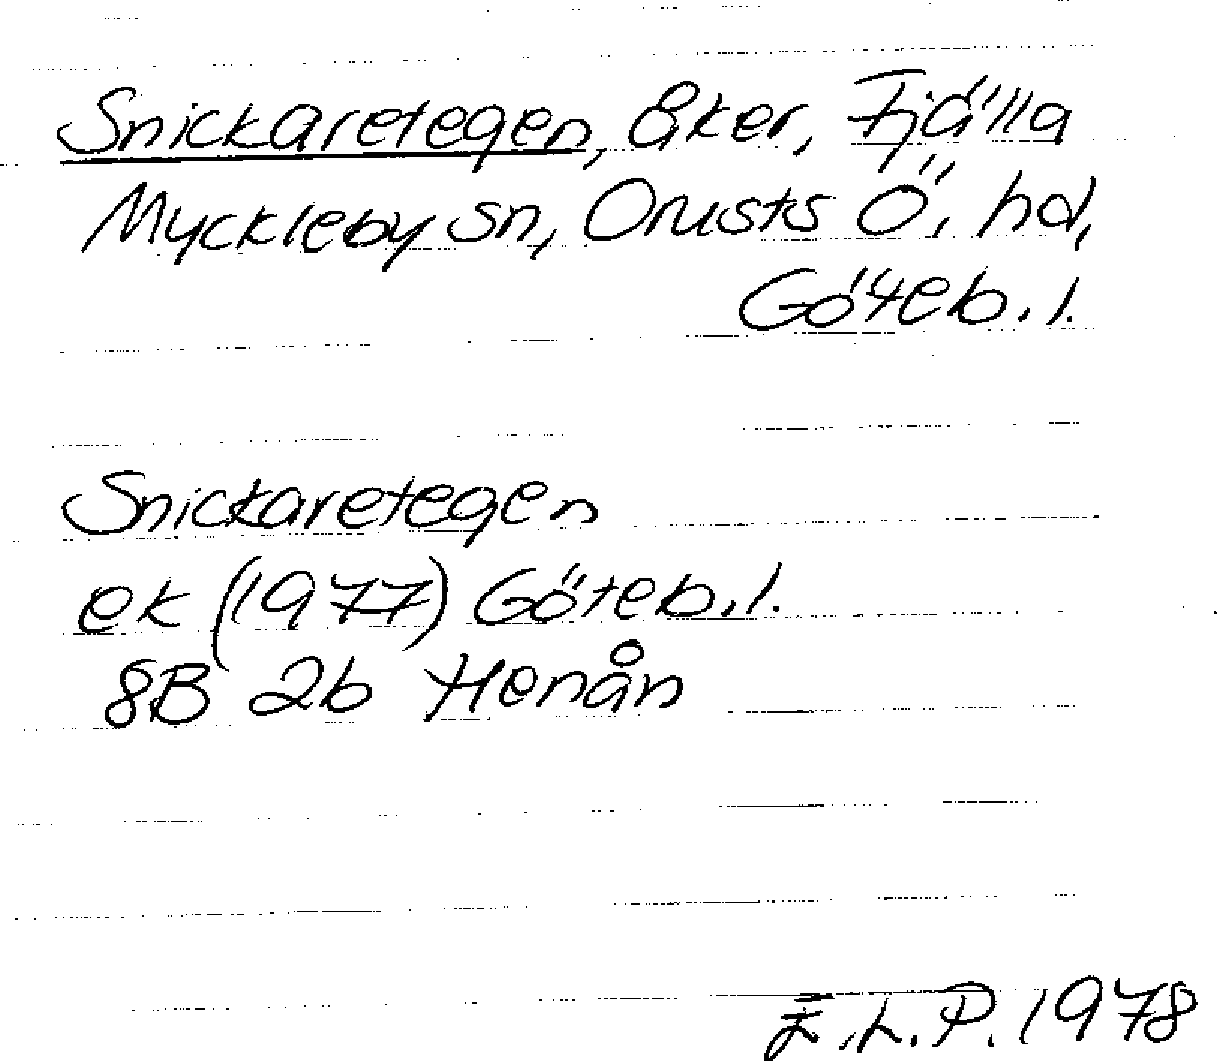 Snickaretegen, åker, Fjälla
Myckleby sn, Orusts Ö, hd,
Göteb. l.
Snickaretegen
ek (1977) Göteb. l.
8B 2b Henån
F.L.P. 1978